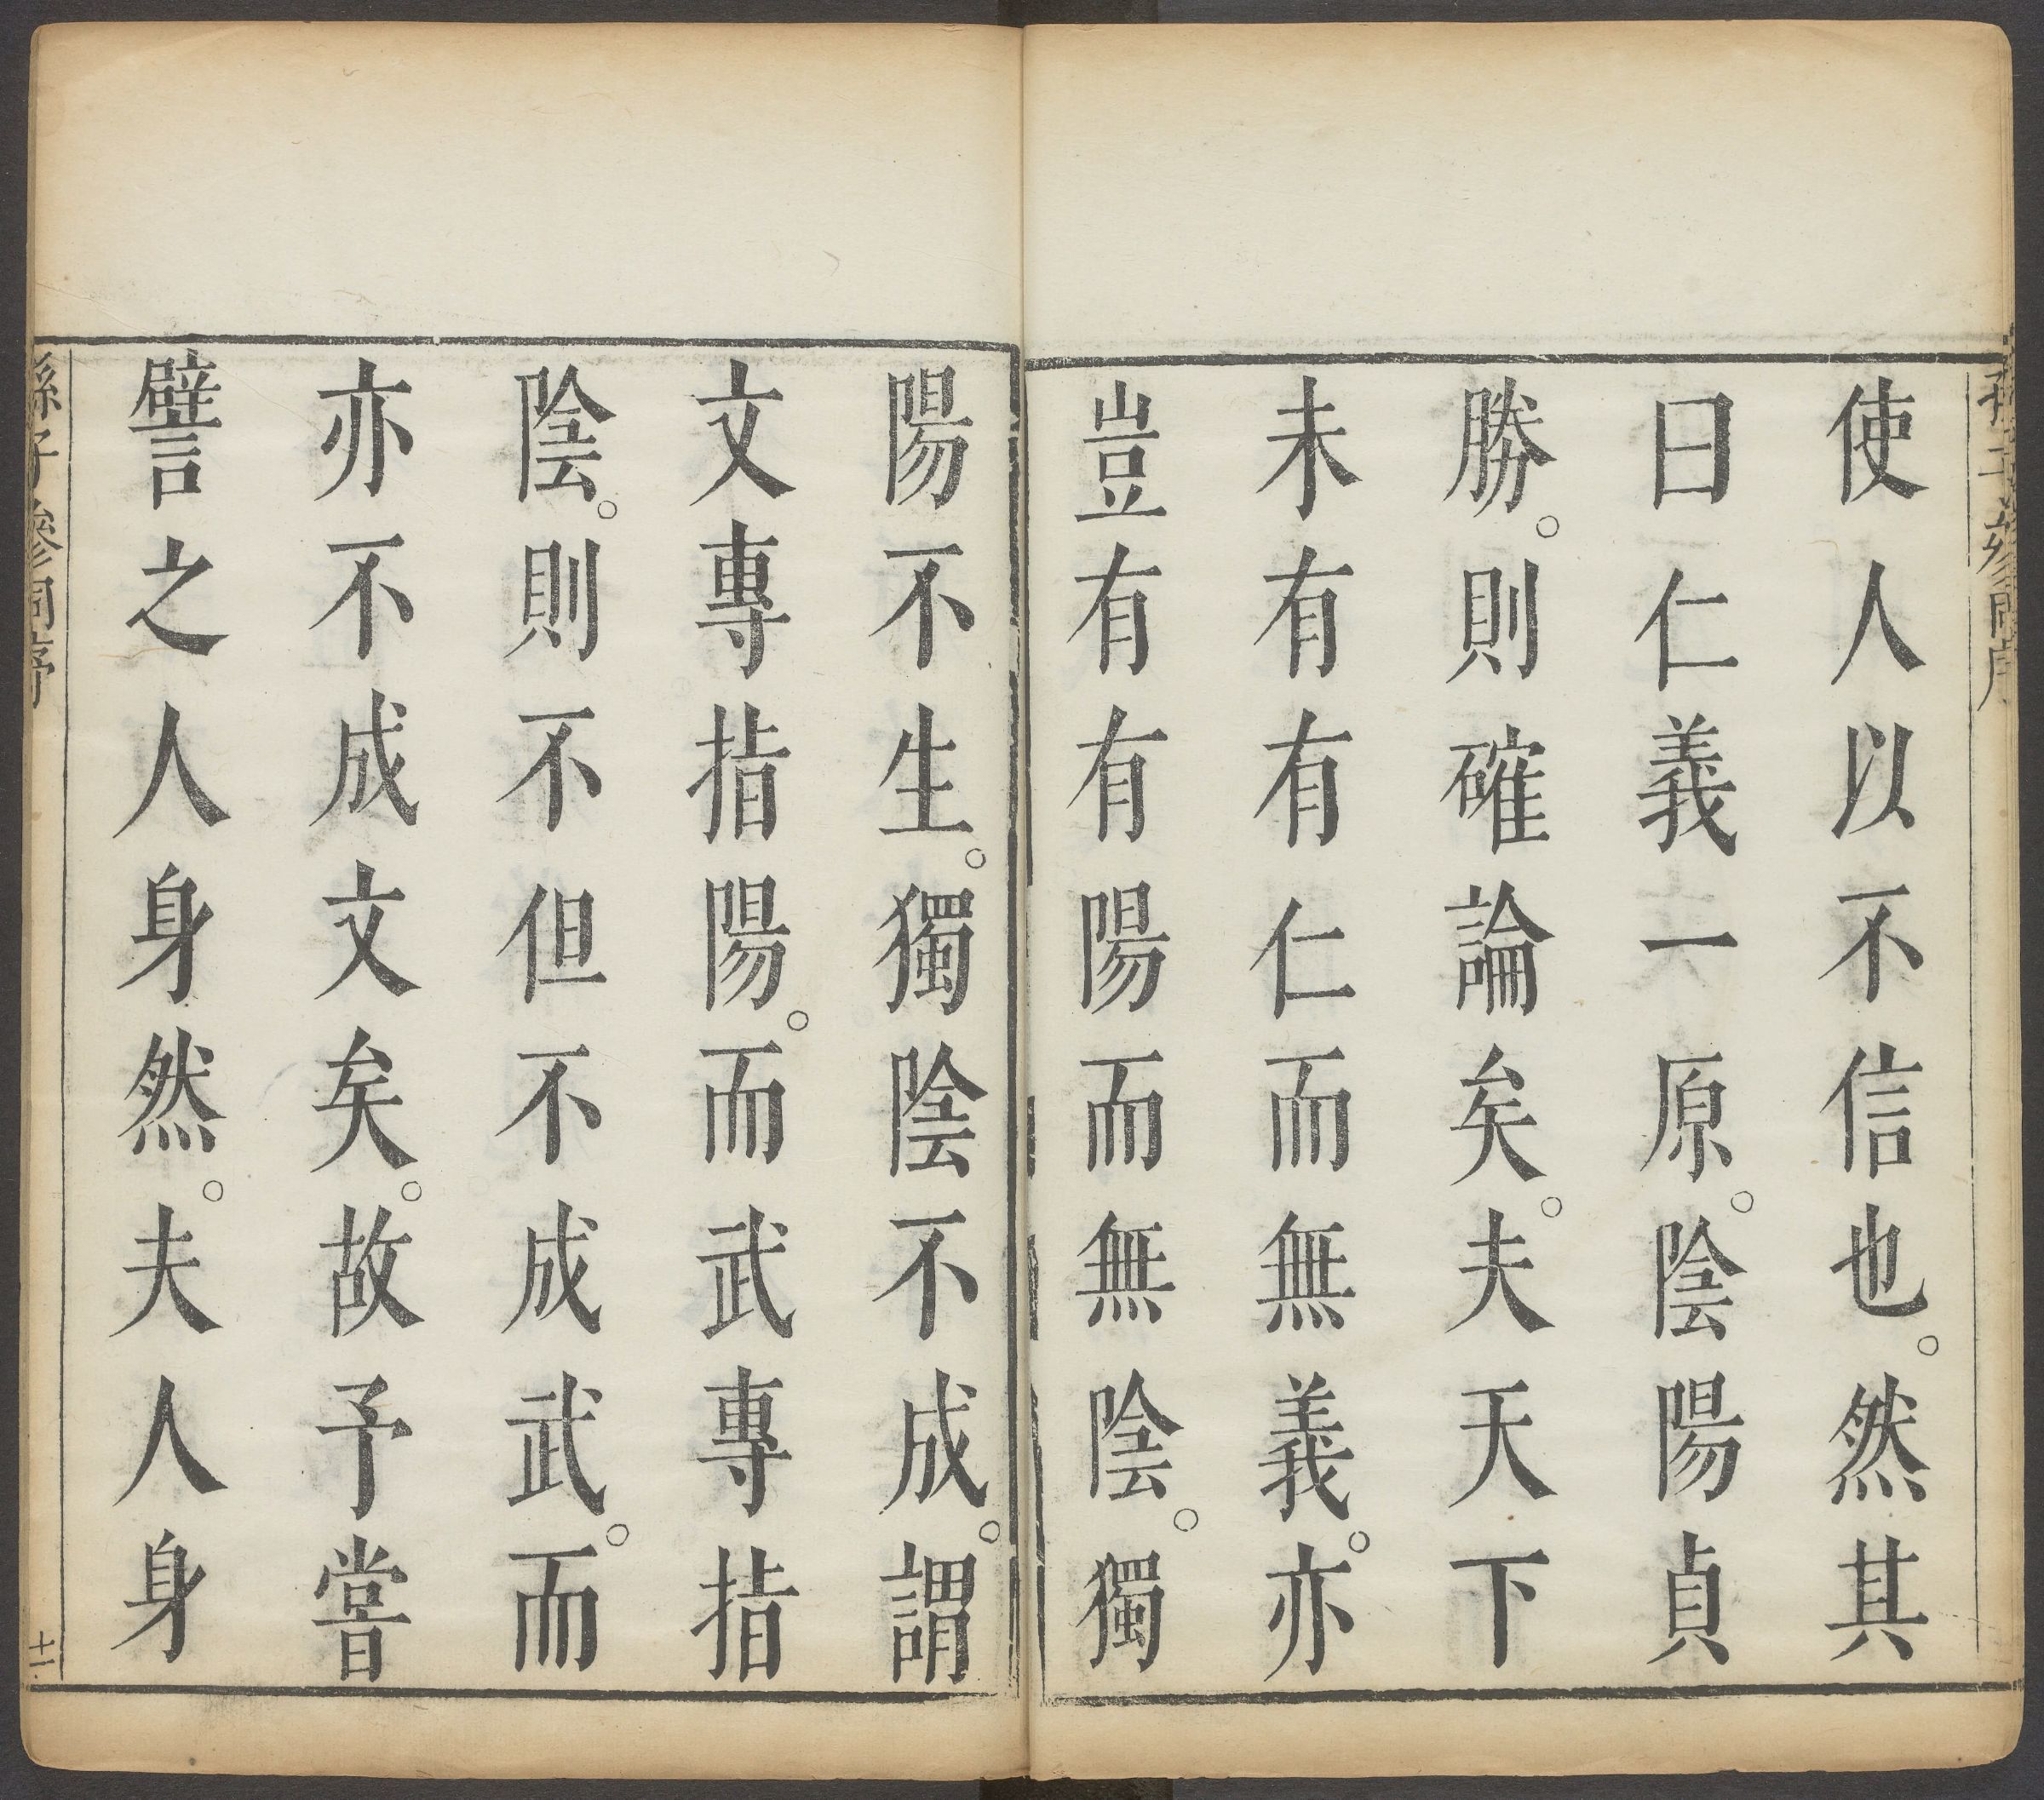 使人以不信也。然其
曰仁義一原。陰陽貞
勝。則確論矣。夫天下
未有有仁而無義。亦
豈有有陽而無陰。獨
陽不生。獨陰不成。謂
文專指陽。而武專指
陰。則不但不成武。而
亦不成文矣。故予嘗
譬之人身然。夫人身
孫子參同序
十一